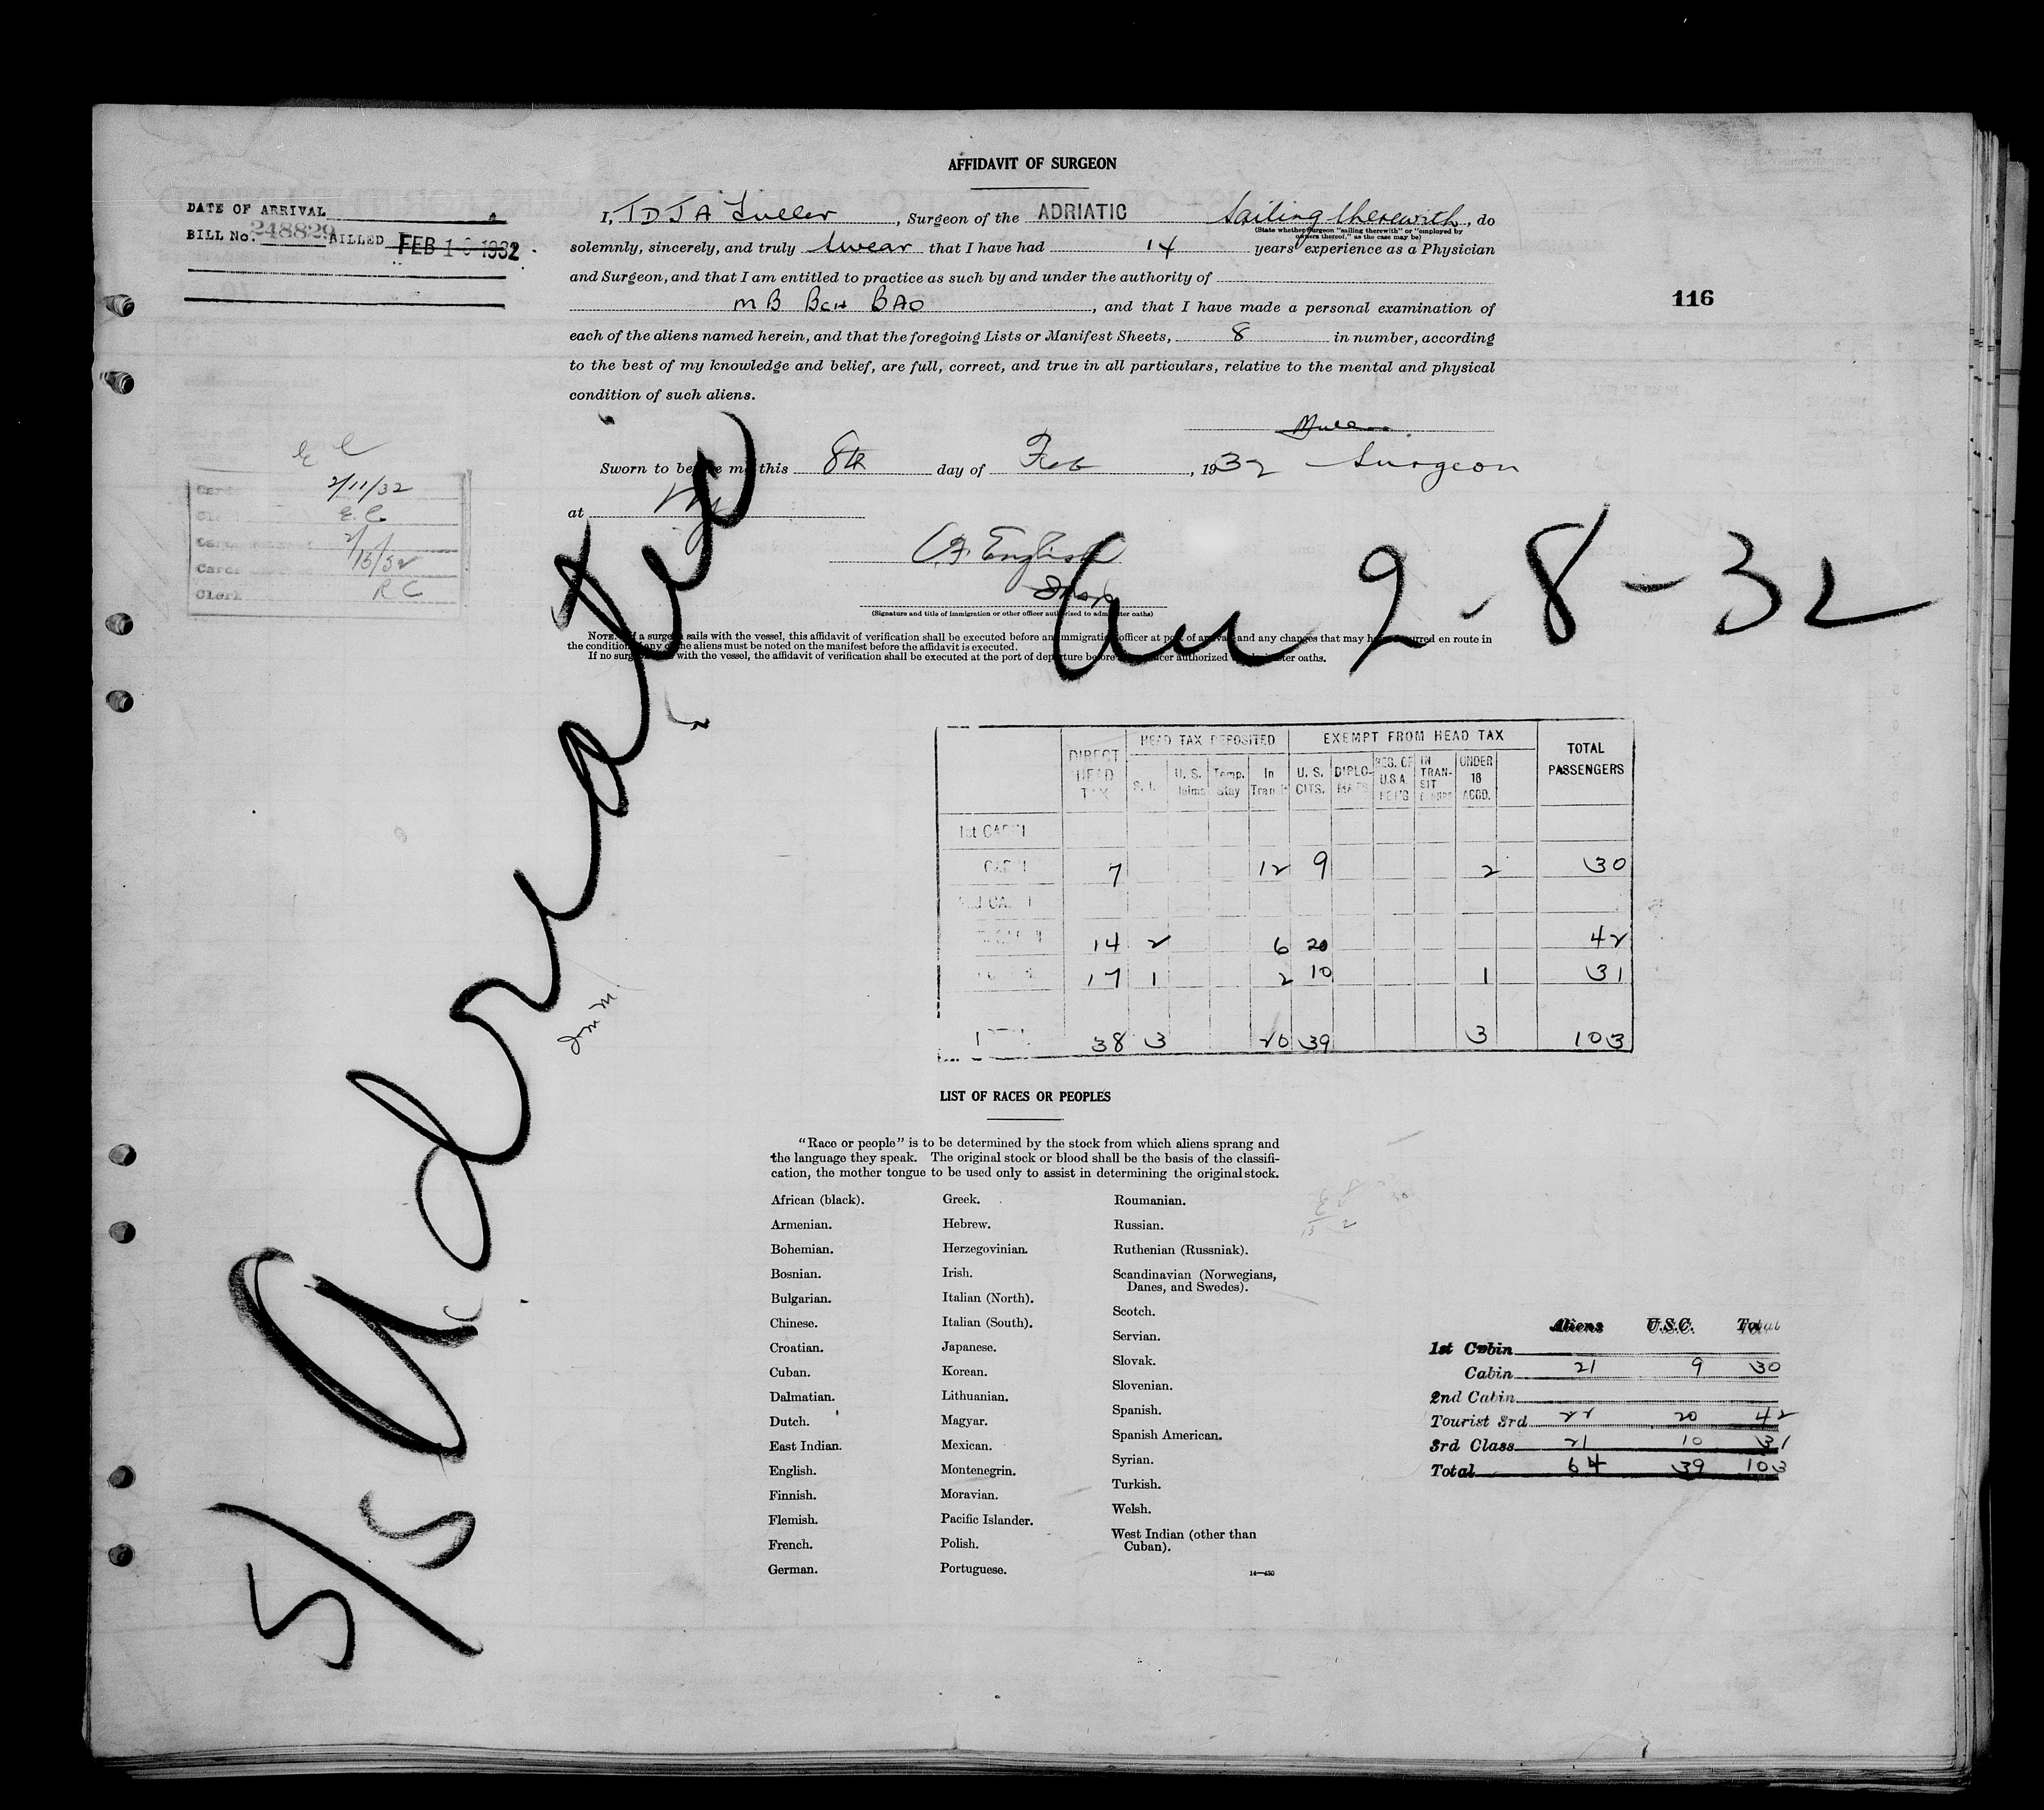 AFFIDAVIT OF SURGEON
DATE OF ARRIVAL
BILL No. 248829 AILLED FEB 10 1932
I, T D J A Fuller, Surgeon of the ADRIATIC Sailing therewith, do
(State whether Surgeon "sailing therewith" or "employed by
owners thereof," as the case may be)
solemnly, sincerely, and truly swear that I have had 14 years' experience as a Physician
and Surgeon, and that I am entitled to practice as such by and under the authority of
M B BCH BAO, and that I have made a personal examination of
each of the aliens named herein, and that the foregoing Lists or Manifest Sheets, 8 in number, according
to the best of my knowledge and belief, are full, correct, and true in all particulars, relative to the mental and physical
condition of such aliens.
116
Sworn to before me this 8th day of Feb, 1932 Surgeon
at NY
English
(Signature and title of immigration or other officer authorized to administer oaths)
2/11/32
E.C.
2/15/32
Clerk R C
Arr 2-8-32
NOTE.—If a surgeon sails with the vessel, this affidavit of verification shall be executed before an immigration officer at port of arrival and any changes that may have occurred en route in
the condition of any of the aliens must be noted on the manifest before the affidavit is executed.
If no surgeon sails with the vessel, the affidavit of verification shall be executed at the port of departure before an officer authorized to administer oaths.
S/S Adriatic
DIRECT HEAD TAX
HEAD TAX DEPOSITED
EXEMPT FROM HEAD TAX
TOTAL PASSENGERS
S. I. U. S. laims Temp. Stay In Transit U. S. CITS. DIPLOMATS RES. OF U.S.A. IN TRANSIT UNDER 16 ACCD.
1st CABIN
CABIN 7 12 9 2 30
2nd CABIN
14 2 6 20 42
17 1 2 10 1 31
38 3 20 39 3 103
LIST OF RACES OR PEOPLES
"Race or people" is to be determined by the stock from which aliens sprang and
the language they speak. The original stock or blood shall be the basis of the classifi-
cation, the mother tongue to be used only to assist in determining the original stock.
African (black).
Armenian.
Bohemian.
Bosnian.
Bulgarian.
Chinese.
Croatian.
Cuban.
Dalmatian.
Dutch.
East Indian.
English.
Finnish.
Flemish.
French.
German.
Greek.
Hebrew.
Herzegovinian.
Irish.
Italian (North).
Italian (South).
Japanese.
Korean.
Lithuanian.
Magyar.
Mexican.
Montenegrin.
Moravian.
Pacific Islander.
Polish.
Portuguese.
Roumanian.
Russian.
Ruthenian (Russniak).
Scandinavian (Norwegians,
Danes, and Swedes).
Scotch.
Servian.
Slovak.
Slovenian.
Spanish.
Spanish American.
Syrian.
Turkish.
Welsh.
West Indian (other than
Cuban).
14—430
Aliens U.S.C. Total
1st Cabin
Cabin 21 9 30
2nd Cabin
Tourist 3rd 22 20 42
3rd Class 21 10 31
Total 64 39 103